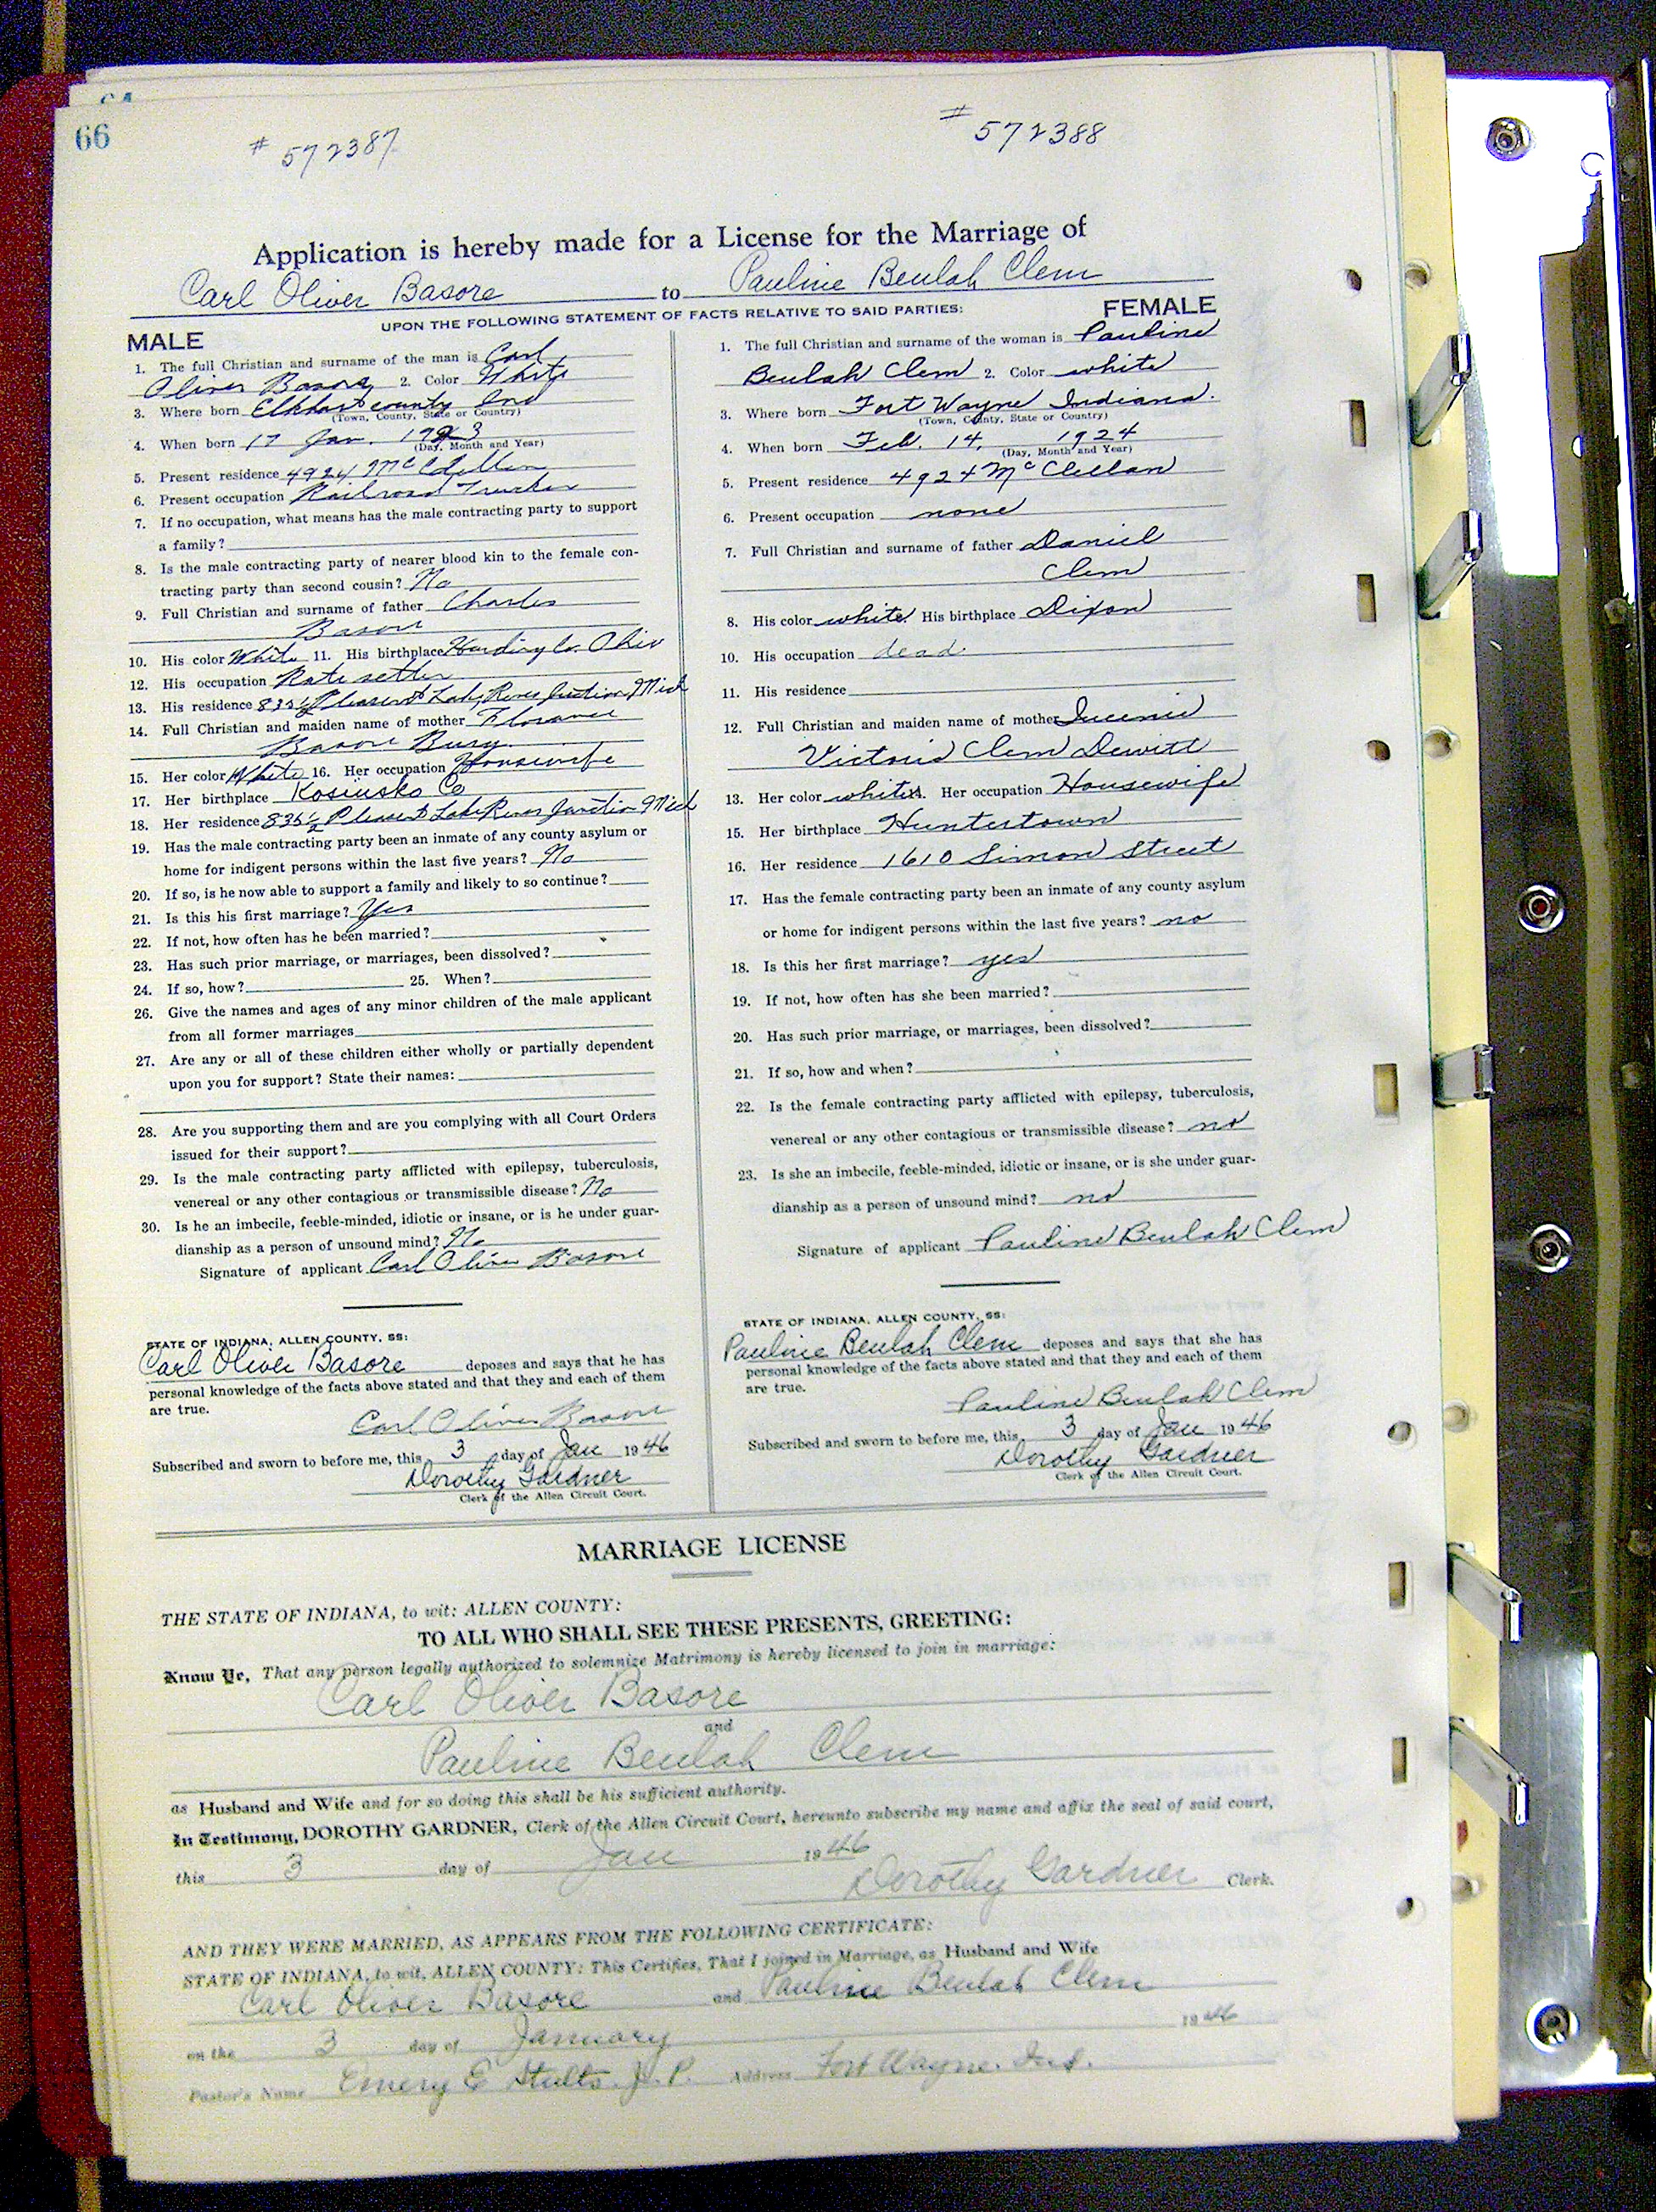 66
# 572387
# 572388
Application is hereby made for a License for the Marriage of
Carl Oliver Basore to Pauline Beulah Clem
UPON THE FOLLOWING STATEMENT OF FACTS RELATIVE TO SAID PARTIES:
MALE
1. The full Christian and surname of the man is Carl
Oliver Basore 2. Color White
3. Where born Elkhart county Ind
(Town, County, State or Country)
4. When born 17 Jan. 1923
(Day, Month and Year)
5. Present residence 4924 McClellan
6. Present occupation Railroad Trucker
7. If no occupation, what means has the male contracting party to support
a family?
8. Is the male contracting party of nearer blood kin to the female con-
tracting party than second cousin? No
9. Full Christian and surname of father Charles
Basore
10. His color White 11. His birthplace Harding Co. Ohio
12. His occupation Rate setter
13. His residence 835½ Pleasent Lake, Rives Junction, Mich
14. Full Christian and maiden name of mother Florance
Basore Burg
15. Her color White 16. Her occupation Housewife
17. Her birthplace Kosiusko Co
18. Her residence 835½ Pleasent Lake Rives Junction Mich
19. Has the male contracting party been an inmate of any county asylum or
home for indigent persons within the last five years? No
20. If so, is he now able to support a family and likely to so continue?
21. Is this his first marriage? Yes
22. If not, how often has he been married?
23. Has such prior marriage, or marriages, been dissolved?
24. If so, how? 25. When?
26. Give the names and ages of any minor children of the male applicant
from all former marriages
27. Are any or all of these children either wholly or partially dependent
upon you for support? State their names:
28. Are you supporting them and are you complying with all Court Orders
issued for their support?
29. Is the male contracting party afflicted with epilepsy, tuberculosis,
venereal or any other contagious or transmissible disease? No
30. Is he an imbecile, feeble-minded, idiotic or insane, or is he under guar-
dianship as a person of unsound mind? No
Signature of applicant Carl Oliver Basore
STATE OF INDIANA, ALLEN COUNTY, SS:
Carl Oliver Basore deposes and says that he has
personal knowledge of the facts above stated and that they and each of them
are true.
Carl Oliver Basore
Subscribed and sworn to before me, this 3 day of Jan 1946
Dorothy Gardner
Clerk of the Allen Circuit Court.
FEMALE
1. The full Christian and surname of the woman is Pauline
Beulah Clem 2. Color white
3. Where born Fort Wayne Indiana.
(Town, County, State or Country)
4. When born Feb. 14, 1924
(Day, Month and Year)
5. Present residence 4924 McClellan
6. Present occupation none
7. Full Christian and surname of father Daniel
Clem
8. His color white. His birthplace Dixon
10. His occupation dead.
11. His residence
12. Full Christian and maiden name of mother
Victoria Clem Dewitt
13. Her color white. Her occupation Housewife
15. Her birthplace Huntertown
16. Her residence 1610 Simon Street
17. Has the female contracting party been an inmate of any county asylum
or home for indigent persons within the last five years? no
18. Is this her first marriage? yes
19. If not, how often has she been married?
20. Has such prior marriage, or marriages, been dissolved?
21. If so, how and when?
22. Is the female contracting party afflicted with epilepsy, tuberculosis,
venereal or any other contagious or transmissible disease? no
23. Is she an imbecile, feeble-minded, idiotic or insane, or is she under guar-
dianship as a person of unsound mind? no
Signature of applicant Pauline Beulah Clem
STATE OF INDIANA, ALLEN COUNTY, SS:
Pauline Beulah Clem deposes and says that she has
personal knowledge of the facts above stated and that they and each of them
are true.
Pauline Beulah Clem
Subscribed and sworn to before me, this 3 day of Jan 1946
Dorothy Gardner
Clerk of the Allen Circuit Court.
MARRIAGE LICENSE
THE STATE OF INDIANA, to wit: ALLEN COUNTY:
TO ALL WHO SHALL SEE THESE PRESENTS, GREETING:
Know Ye, That any person legally authorized to solemnize Matrimony is hereby licensed to join in marriage:
Carl Oliver Basore
and
Pauline Beulah Clem
as Husband and Wife and for so doing this shall be his sufficient authority.
In Testimony, DOROTHY GARDNER, Clerk of the Allen Circuit Court, hereunto subscribe my name and affix the seal of said court,
this 3 day of Jan 1946
Dorothy Gardner Clerk.
AND THEY WERE MARRIED, AS APPEARS FROM THE FOLLOWING CERTIFICATE:
STATE OF INDIANA, to wit, ALLEN COUNTY: This Certifies, That I joined in Marriage, as Husband and Wife
Carl Oliver Basore and Pauline Beulah Clem
on the 3 day of January 1946
Pastor's Name Emery E Stults. J. P. Address Fort Wayne. Ind.